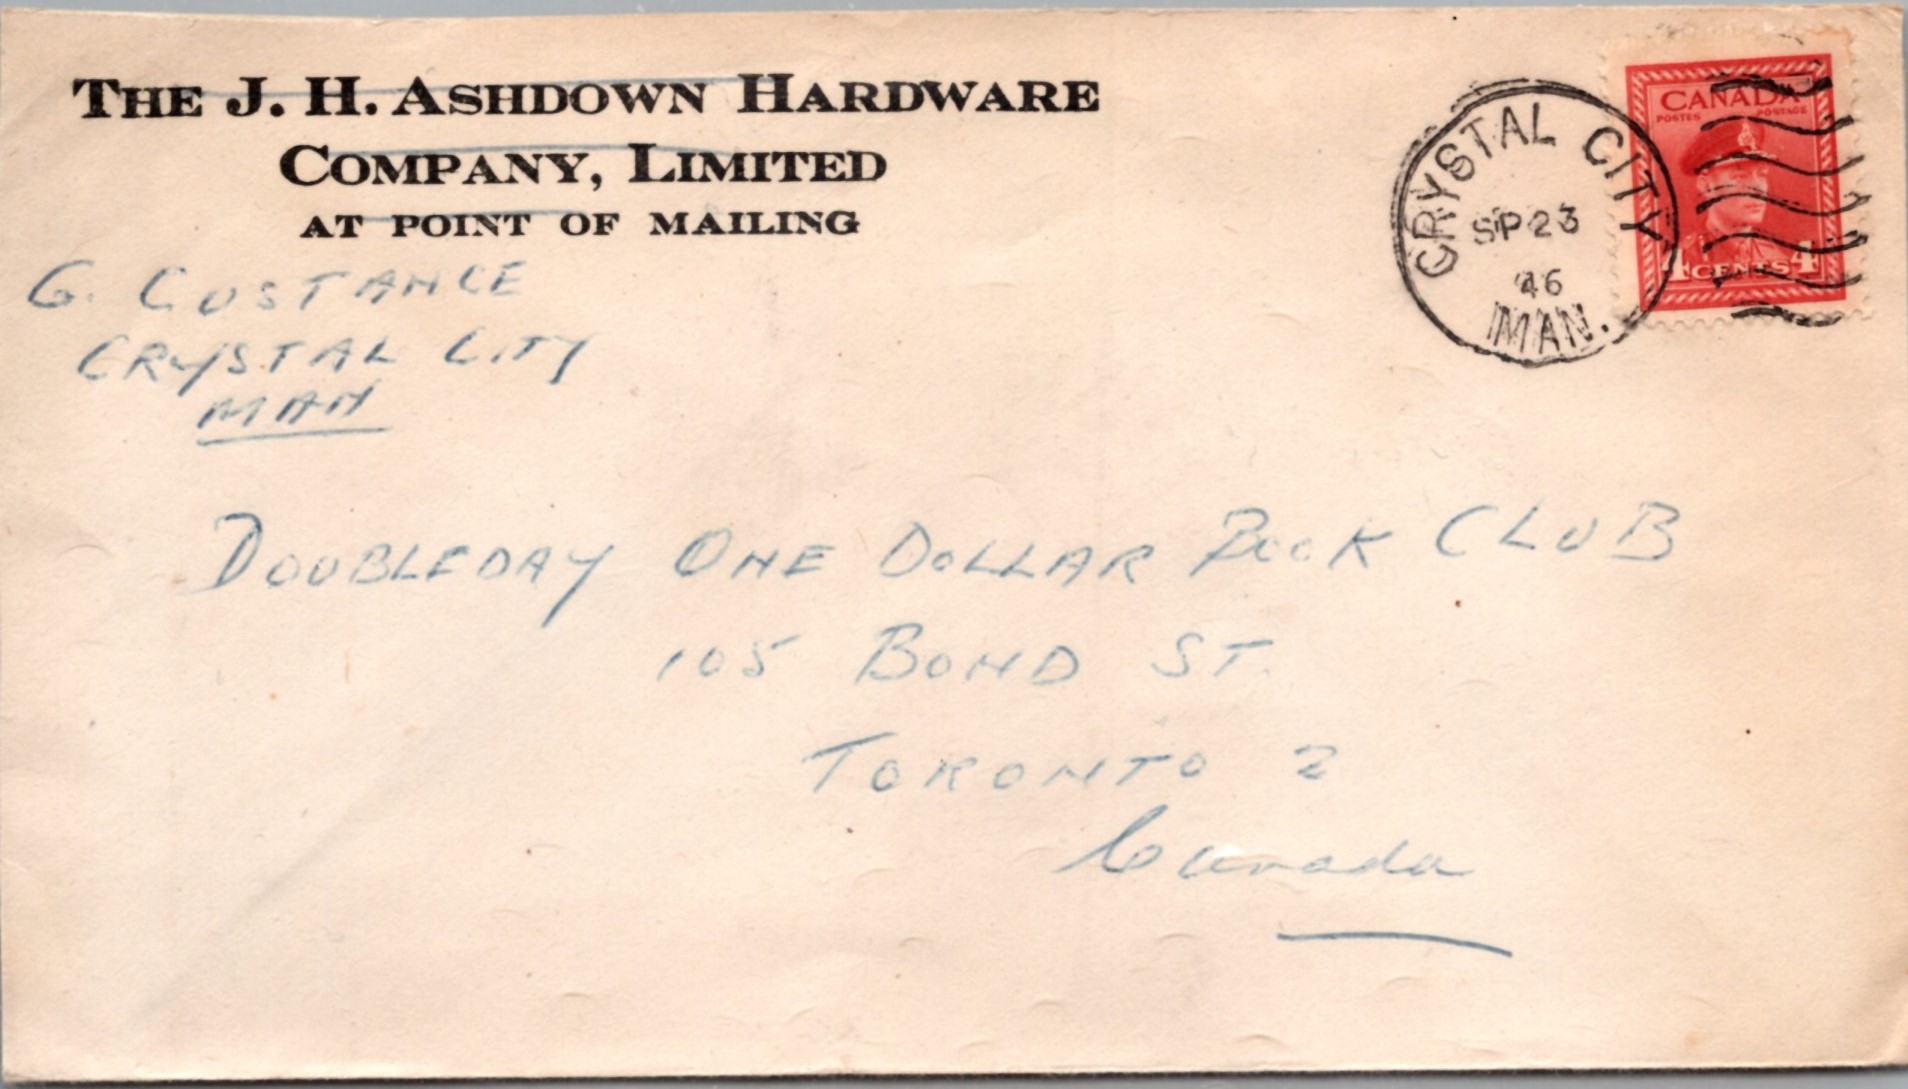 THE J. H. ASHDOWN HARDWARE
COMPANY, LIMITED
AT POINT OF MAILING
G. CUSTANCE
CRYSTAL CITY
MAN
CRYSTAL CITY
SP 23
46
MAN.
CANADA
POSTES POSTAGE
4 CENTS 4
DOUBLEDAY ONE DOLLAR BOOK CLUB
105 BOND ST.
TORONTO 2
Canada